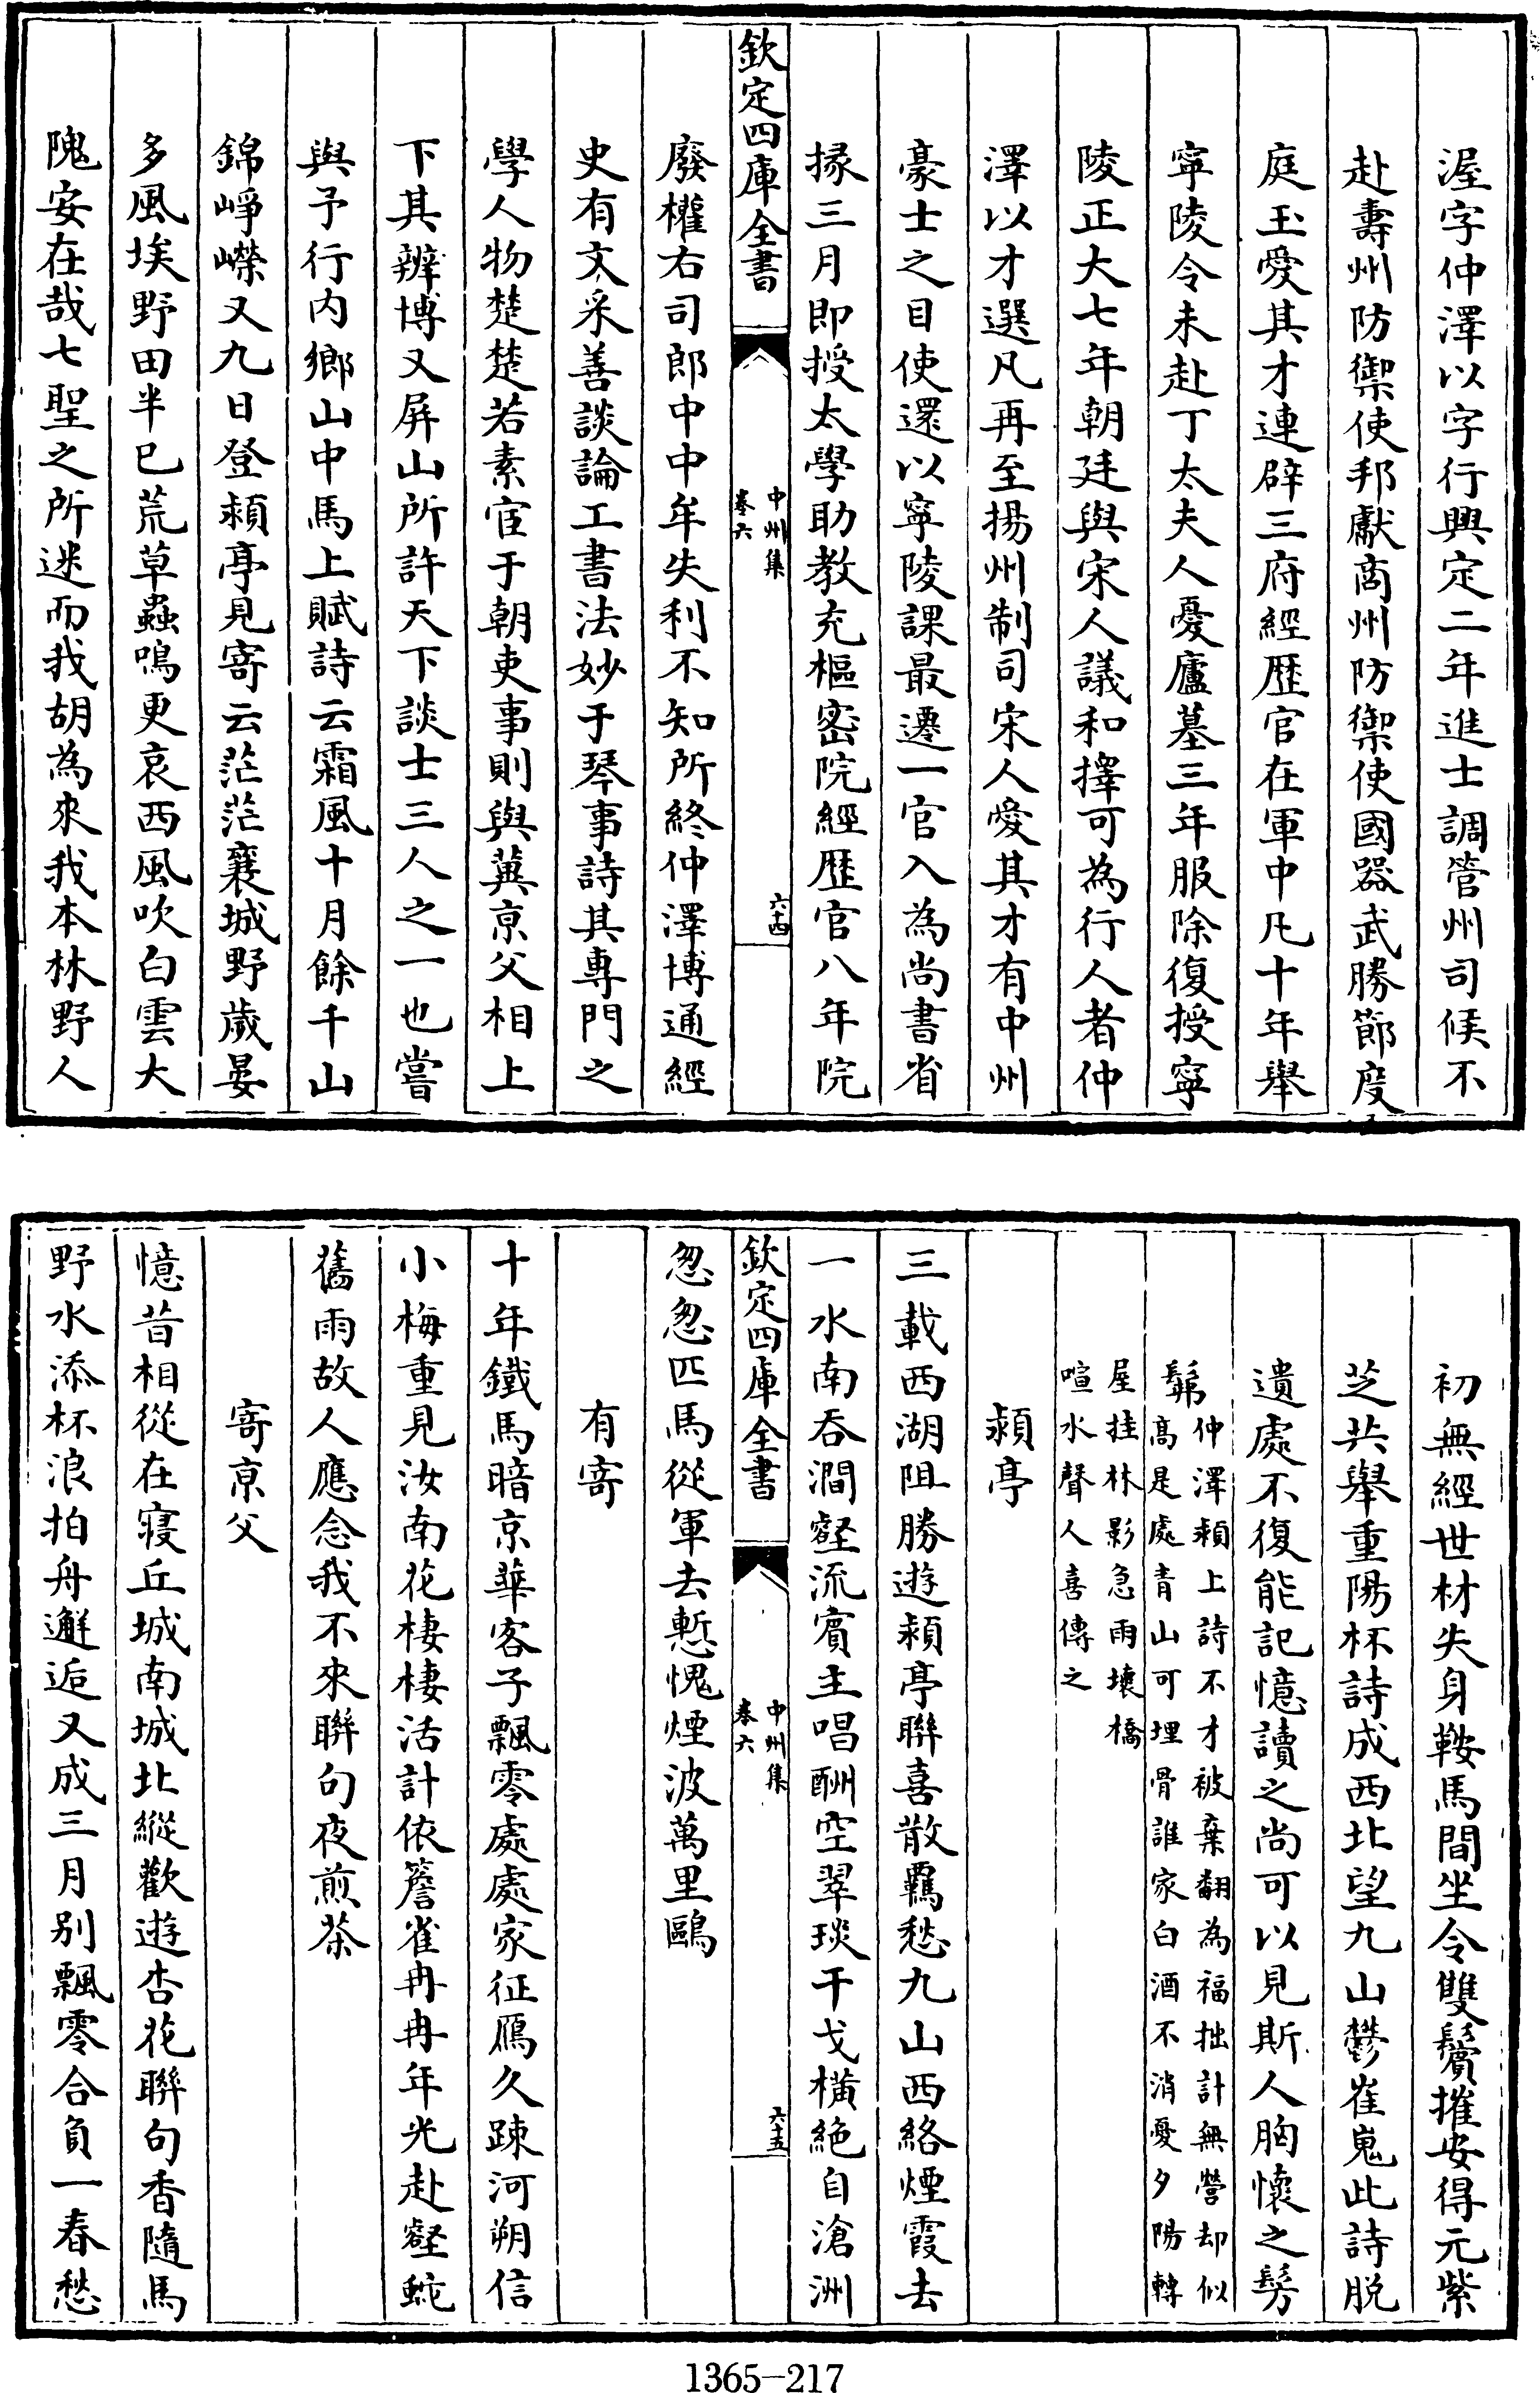 渥字仲澤以字行興定二年進士調管州司候不
赴壽州防禦使邦獻商州防禦使國器武勝節度
庭玉愛其才連辟三府經歷官在軍中凡十年舉
寧陵令未赴丁太夫人憂廬墓三年服除復授寧
陵正大七年朝廷與宋人議和擇可為行人者仲
澤以才選凡再至揚州制司宋人愛其才有中州
豪士之目使還以寧陵課最遷一官入為尚書省
掾三月即授太學助教充樞密院經歷官八年院
欽定四庫全書
中州集
卷六
六十四
廢權右司郎中中牟失利不知所終仲澤博通經
史有文采善談論工書法妙于琴事詩其專門之
學人物楚楚若素宦于朝吏事則與冀京父相上
下其辨博又屏山所許天下談士三人之一也嘗
與予行內鄉山中馬上賦詩云霜風十月餘千山
錦崢嶸又九日登潁亭見寄云茫茫襄城野歲晏
多風埃野田半已荒草蟲鳴更哀西風吹白雲大
隗安在哉七聖之所迷而我胡為來我本林野人
初無經世材失身鞍馬間坐令雙鬢摧安得元紫
芝共舉重陽杯詩成西北望九山鬱崔嵬此詩脫
遺處不復能記憶讀之尚可以見斯人胸懷之髣
髴
仲澤潁上詩不才被棄翻為福拙計無營却似
高是處青山可埋骨誰家白酒不消憂夕陽轉
屋挂林影急雨壞橋
喧水聲人喜傳之
潁亭
三載西湖阻勝遊潁亭聯喜散羈愁九山西絡煙霞去
一水南吞澗壑流賓主唱酬空翠琰干戈橫絶自滄洲
欽定四庫全書
中州集
卷六
六十五
忽忽匹馬從軍去慙愧煙波萬里鷗
有寄
十年鐵馬暗京華客子飄零處處家征鴈久踈河朔信
小梅重見汝南花棲棲活計依簷雀冉冉年光赴壑蛇
舊雨故人應念我不來聯句夜煎茶
寄京父
憶昔相從在寢丘城南城北縱歡遊杏花聯句香隨馬
野水添杯浪拍舟邂逅又成三月别飄零合負一春愁
1365-217